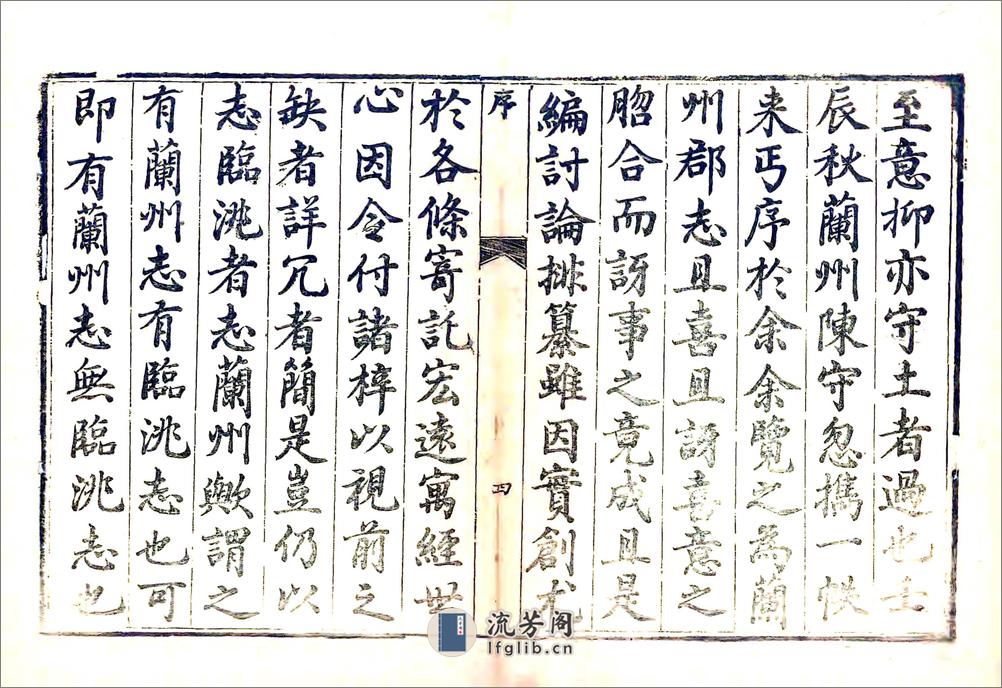 至意抑亦守土者過也壬
辰秋蘭州陳守忽攜一帙
来丐序於余余覽之為蘭
州郡志且喜且訝喜意之
脗合而訝事之竟成且是
編討論排纂雖因實創尤
序
四
於各條寄託宏遠寓經世
心因令付諸梓以視前之
缺者詳冗者簡是豈仍以
志臨洮者志蘭州歟謂之
有蘭州志有臨洮志也可
即有蘭州志無臨洮志也
流芳阁
lfglib.cn